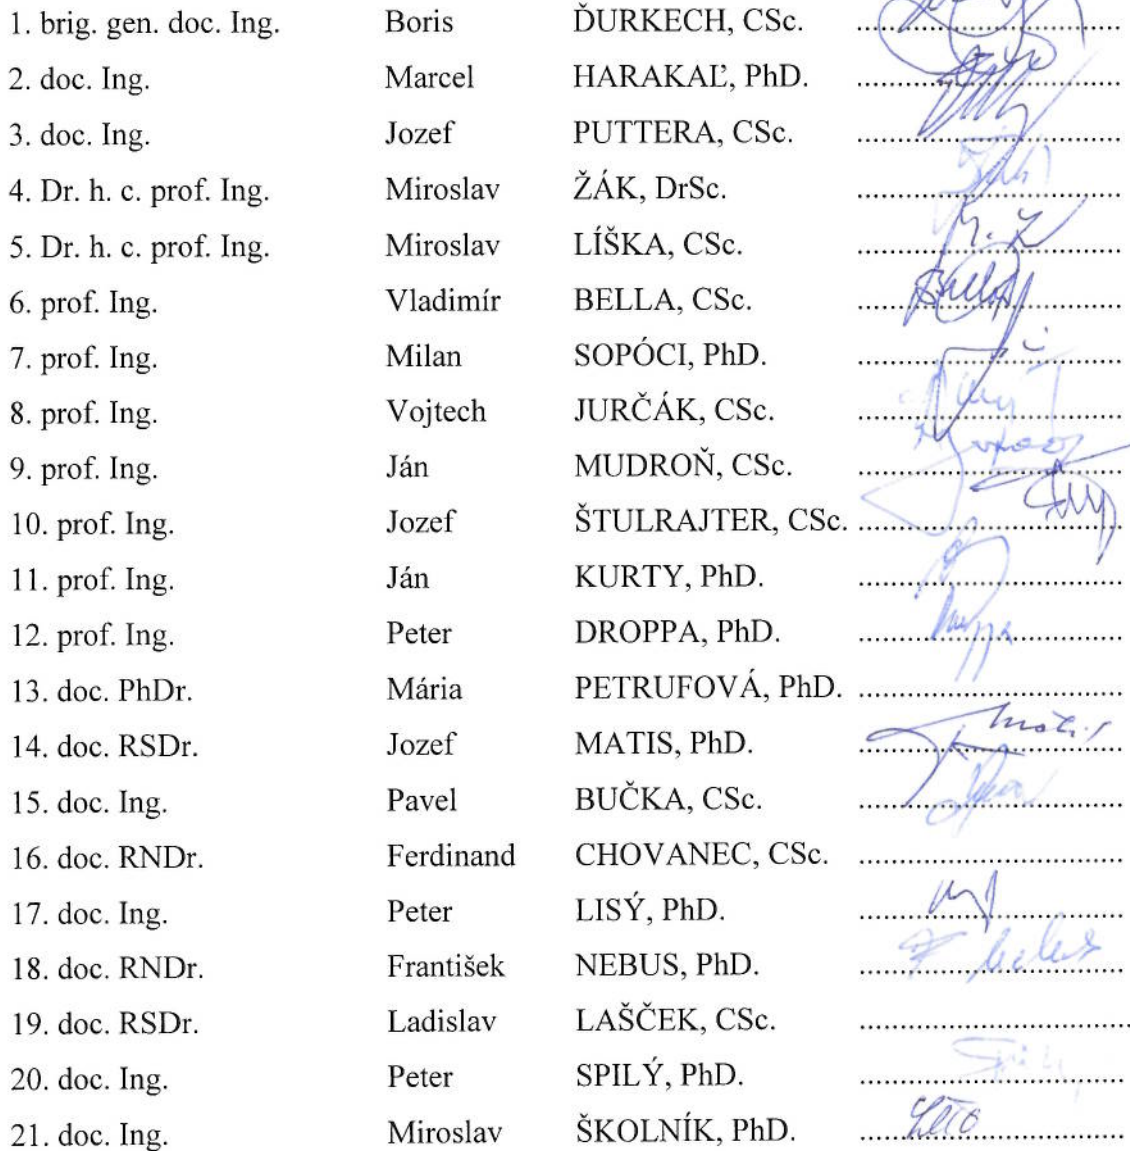 1. brig. gen. doc. Ing. Boris ĎURKECH, CSc. ........................................
2. doc. Ing. Marcel HARAKAĽ, PhD. ........................................
3. doc. Ing. Jozef PUTTERA, CSc. ........................................
4. Dr. h. c. prof. Ing. Miroslav ŽÁK, DrSc. ........................................
5. Dr. h. c. prof. Ing. Miroslav LÍŠKA, CSc. ........................................
6. prof. Ing. Vladimír BELLA, CSc. ........................................
7. prof. Ing. Milan SOPÓCI, PhD. ........................................
8. prof. Ing. Vojtech JURČÁK, CSc. ........................................
9. prof. Ing. Ján MUDROŇ, CSc. ........................................
10. prof. Ing. Jozef ŠTULRAJTER, CSc. ........................................
11. prof. Ing. Ján KURTY, PhD. ........................................
12. prof. Ing. Peter DROPPA, PhD. ........................................
13. doc. PhDr. Mária PETRUFOVÁ, PhD. ........................................
14. doc. RSDr. Jozef MATIS, PhD. ........................................
15. doc. Ing. Pavel BUČKA, CSc. ........................................
16. doc. RNDr. Ferdinand CHOVANEC, CSc. ........................................
17. doc. Ing. Peter LISÝ, PhD. ........................................
18. doc. RNDr. František NEBUS, PhD. ........................................
19. doc. RSDr. Ladislav LAŠČEK, CSc. ........................................
20. doc. Ing. Peter SPILÝ, PhD. ........................................
21. doc. Ing. Miroslav ŠKOLNÍK, PhD. ........................................